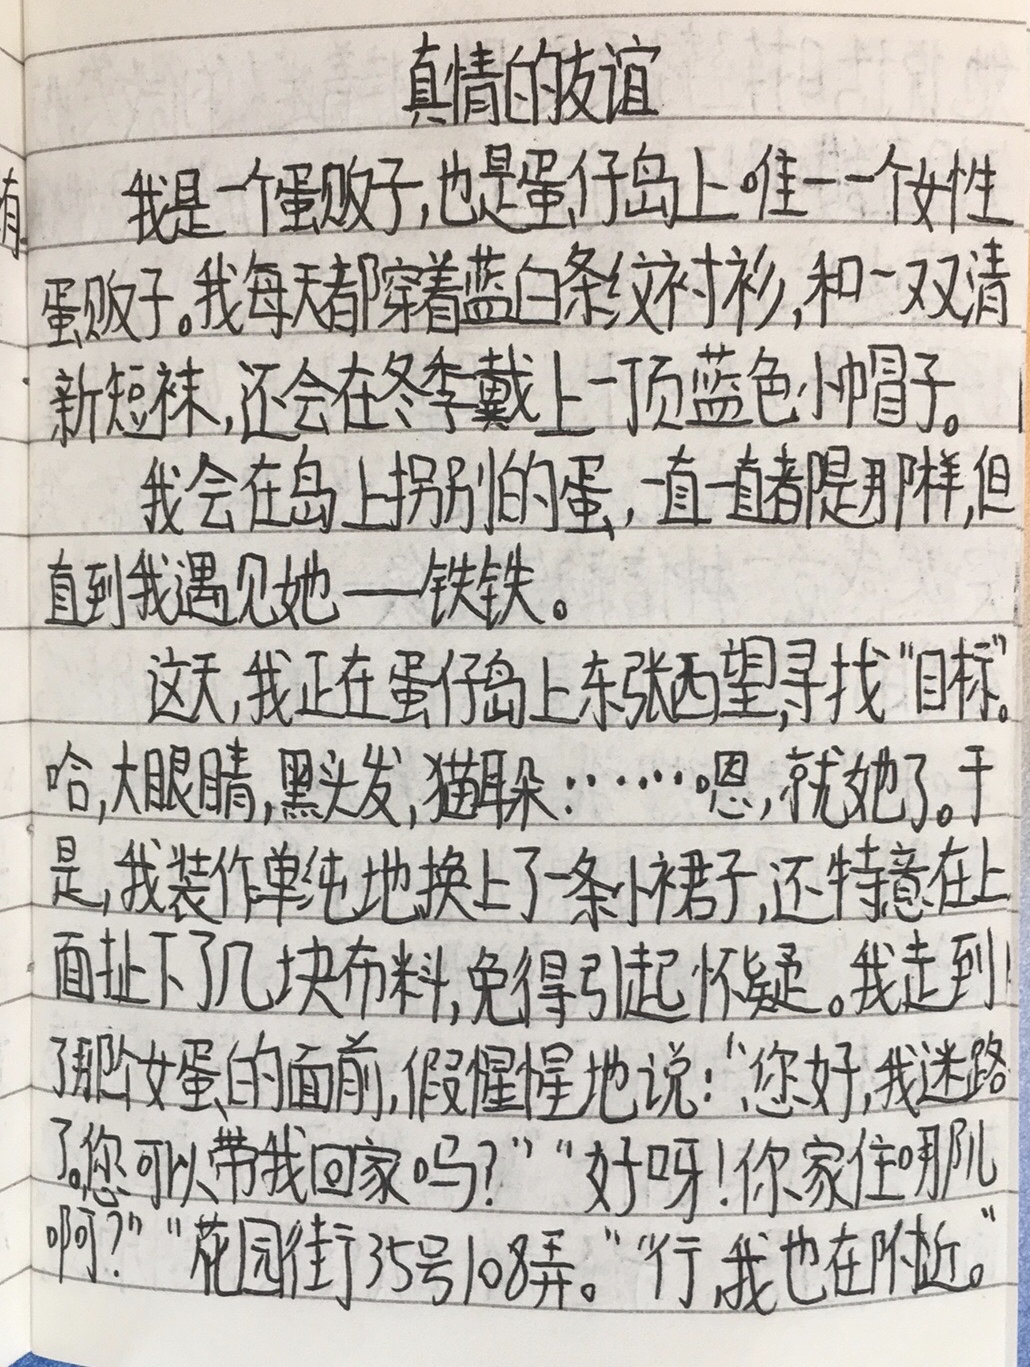 真情的友谊
我是一个蛋贩子,也是蛋仔岛上唯一一个女性
蛋贩子。我每天都穿着蓝白条纹衬衫,和一双清
新短袜,还会在冬季戴上一顶蓝色小帽子。
我会在岛上拐别的蛋,一直一直都是那样,但
直到我遇见她——铁铁。
这天,我正在蛋仔岛上东张西望,寻找“目标”。
哈,大眼睛,黑头发,猫耳朵……嗯,就她了。于
是,我装作单纯地换上了一条小裙子,还特意在上
面扯下了几块布料,免得引起怀疑。我走到
了那个女蛋的面前,假惺惺地说:“您好,我迷路
了。您可以带我回家吗?”“好呀!你家住哪儿
啊?”“花园街35号108弄。”“行,我也在附近。”
有